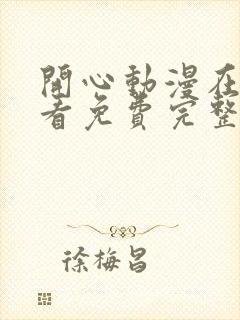 開心動漫在
看免費完整
徐梅昌